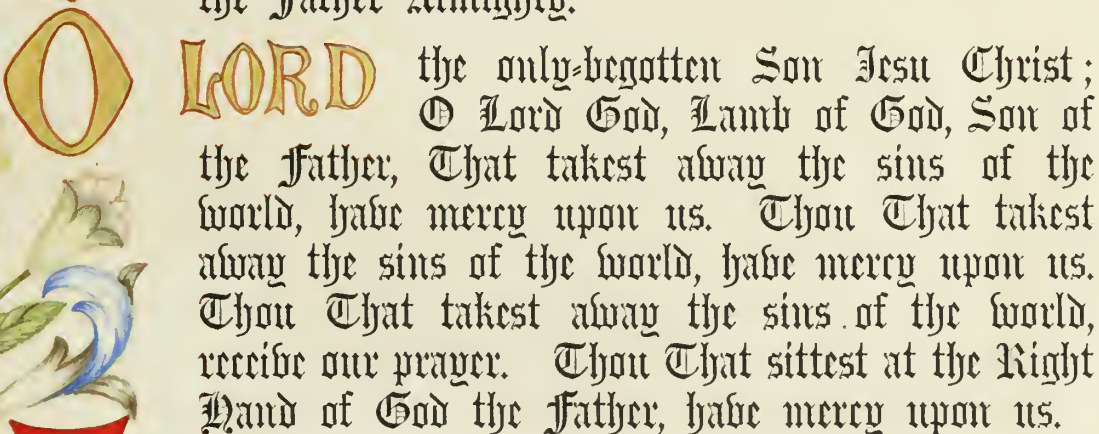 the Father Almighty.
O LORD the only-begotten Son Jesu Christ;
O Lord God, Lamb of God, Son of
the Father, That takest away the sins of the
world, have mercy upon us. Thou That takest
away the sins of the world, have mercy upon us.
Thou That takest away the sins of the world,
receive our prayer. Thou That sittest at the Right
Hand of God the Father, have mercy upon us.